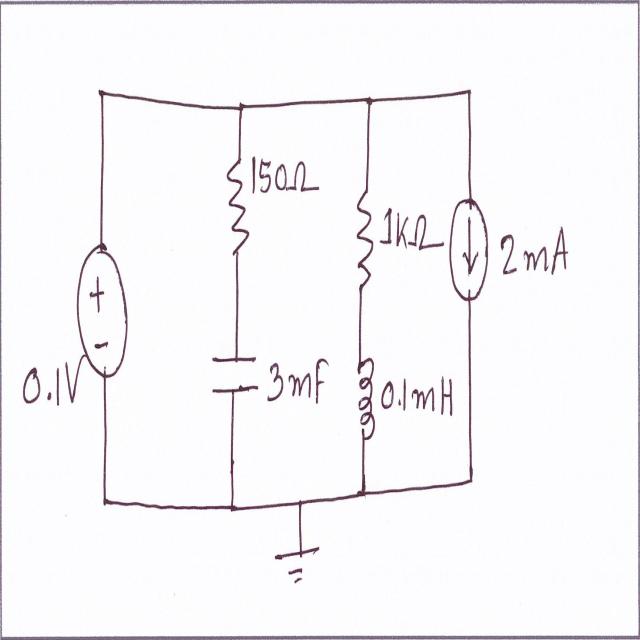 150Ω
1KΩ
2mA
+
-
0.1V
3mF
0.1mH